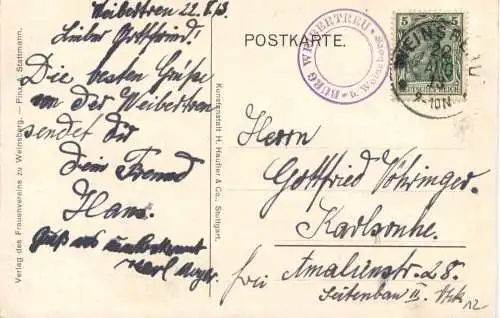 Weibertreu 22.8.13.
Lieber Gottfried!
Die besten Grüße
von der Weibertreu
sendet dir
Dein Freund
Hans.
Gruß aus unbekannt
Karl
Verlag des Frauenvereins zu Weinsberg. — Pinx. v. Stattmann.
Kunstanstalt H. Haufler & Co., Stuttgart.
POSTKARTE.
BURG WEIBERTREU
b. Weinsberg
5 5
DEUTSCHES REICH
WEINSBERG
8-10N
Herrn
Gottfried Vöhringer.
Karlsruhe.
frei Amalienstr. 28.
Seitenbau II. Stck
12